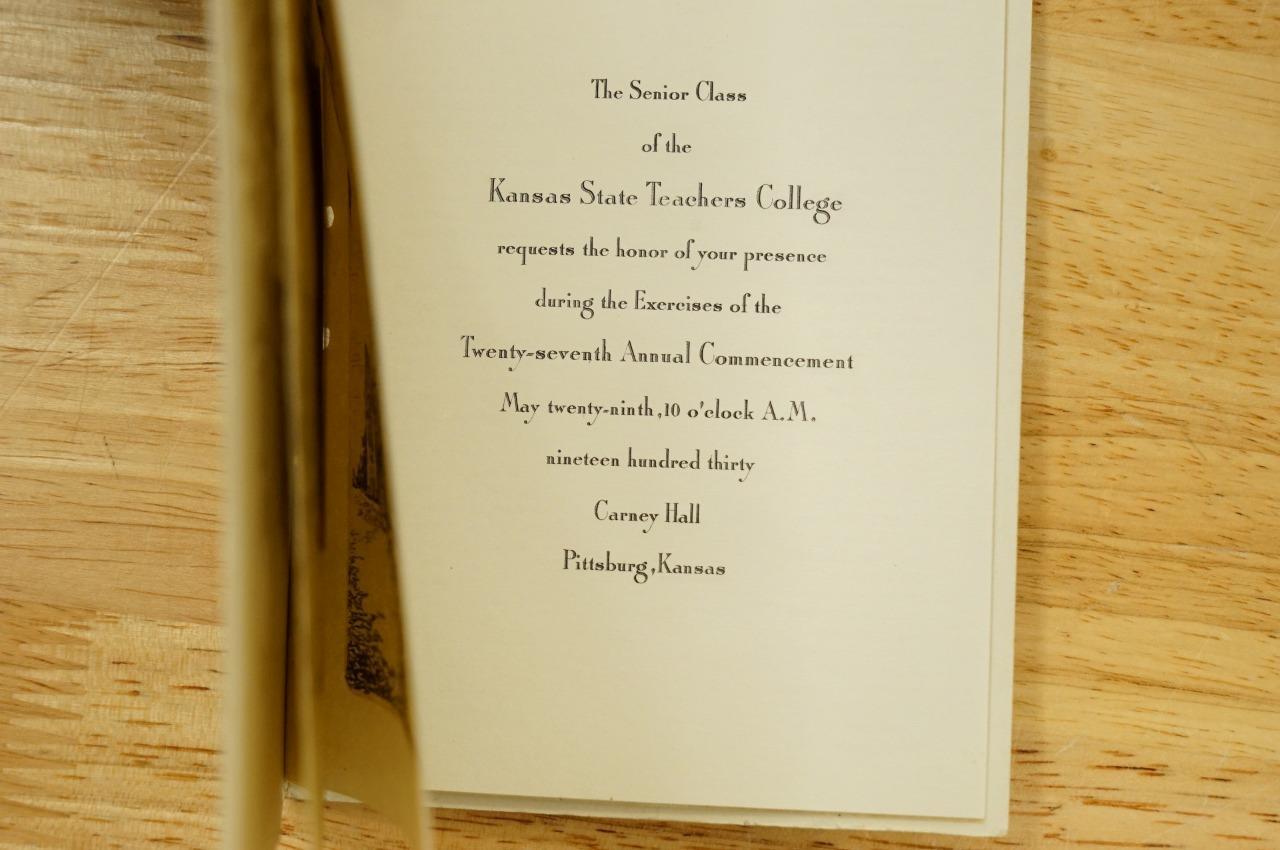 The Senior Class
of the
Kansas State Teachers College
requests the honor of your presence
during the Exercises of the
Twenty-seventh Annual Commencement
May twenty-ninth, 10 o'clock A.M.
nineteen hundred thirty
Carney Hall
Pittsburg, Kansas